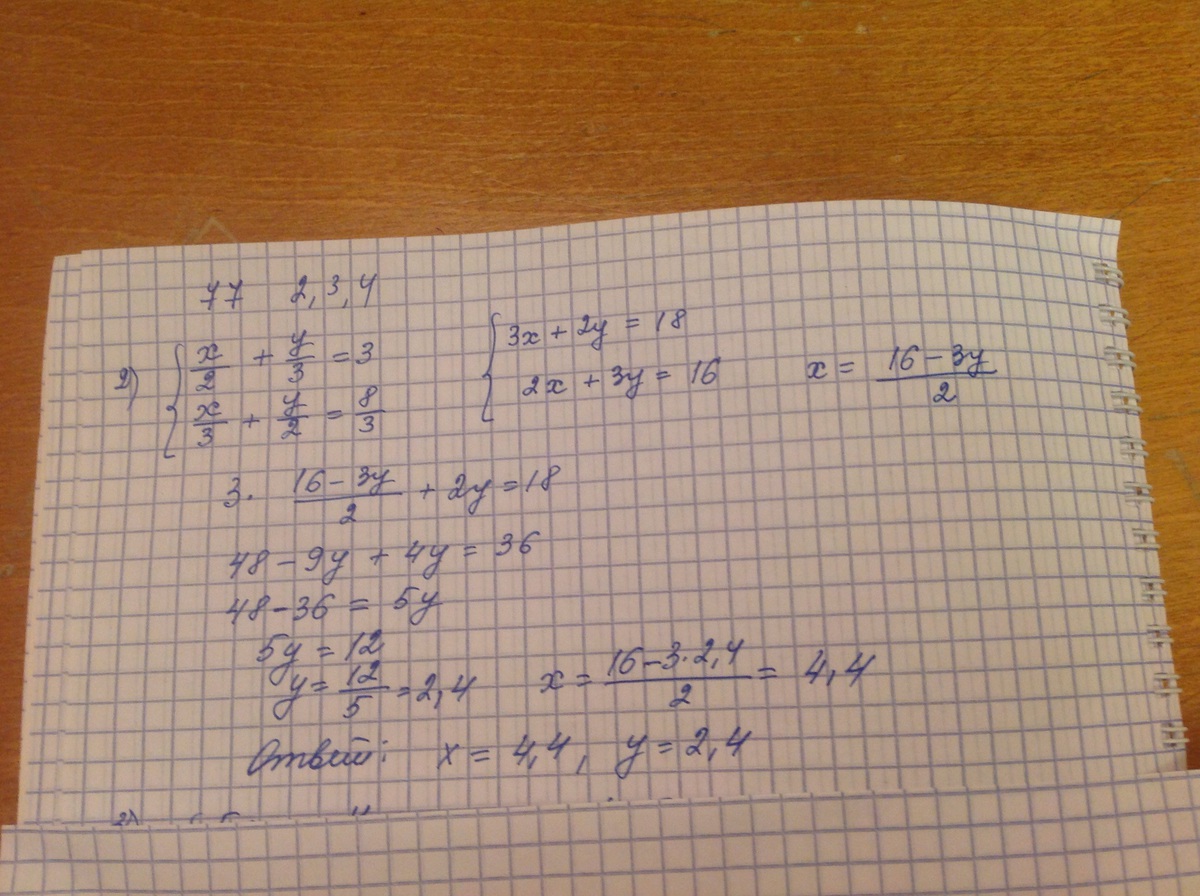 77 2,3,4
2) { x/2 + y/3 = 3 { 3x + 2y = 18
x/3 + y/2 = 8/3 2x + 3y = 16 x = (16 - 3y)/2
3 · (16 - 3y)/2 + 2y = 18
48 - 9y + 4y = 36
48 - 36 = 5y
5y = 12
y = 12/5 = 2,4 x = (16 - 3·2,4)/2 = 4,4
Ответ: x = 4,4, y = 2,4